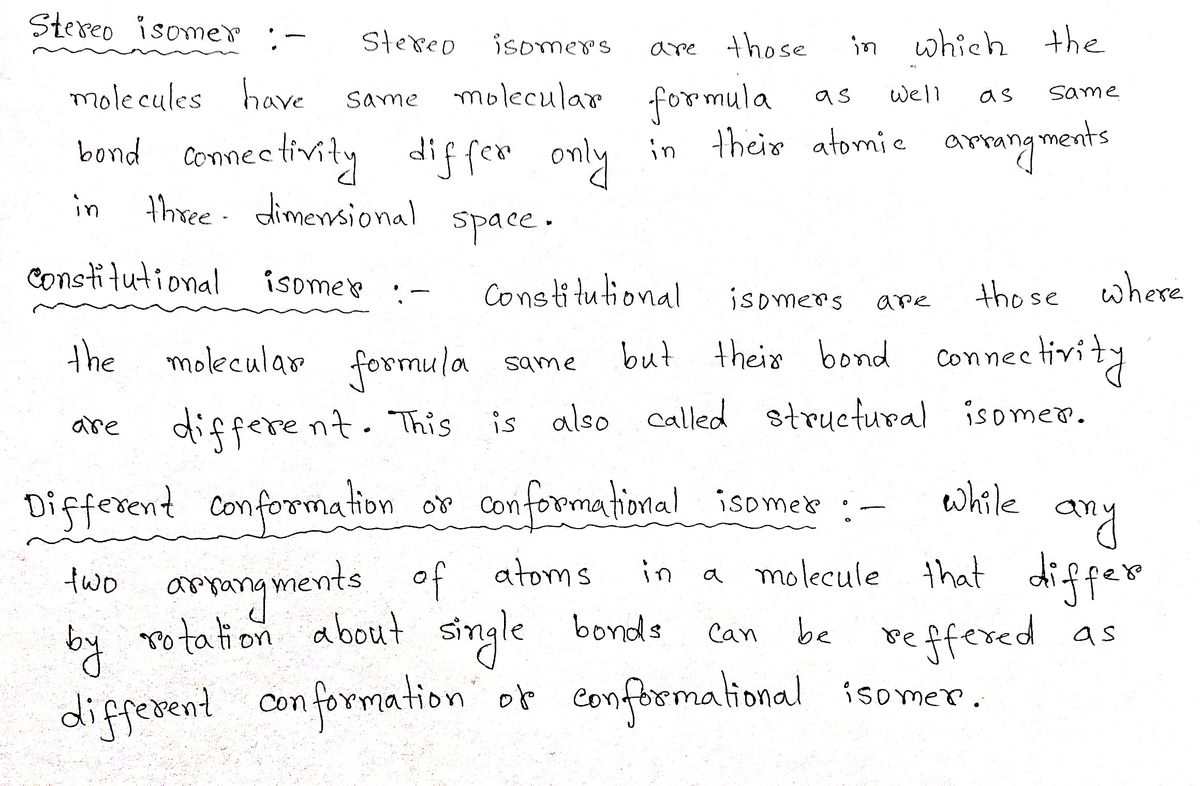 Stereo isomer :- Stereo isomers are those in which the
molecules have same molecular formula as well as same
bond connectivity differ only in their atomic arrangments
in three-dimensional space.
Constitutional isomer :- Constitutional isomers are those where
the molecular formula same but their bond connectivity
are different. This is also called structural isomer.
Different conformation or conformational isomer :- While any
two arrangments of atoms in a molecule that differ
by rotation about single bonds can be reffered as
different conformation or conformational isomer.